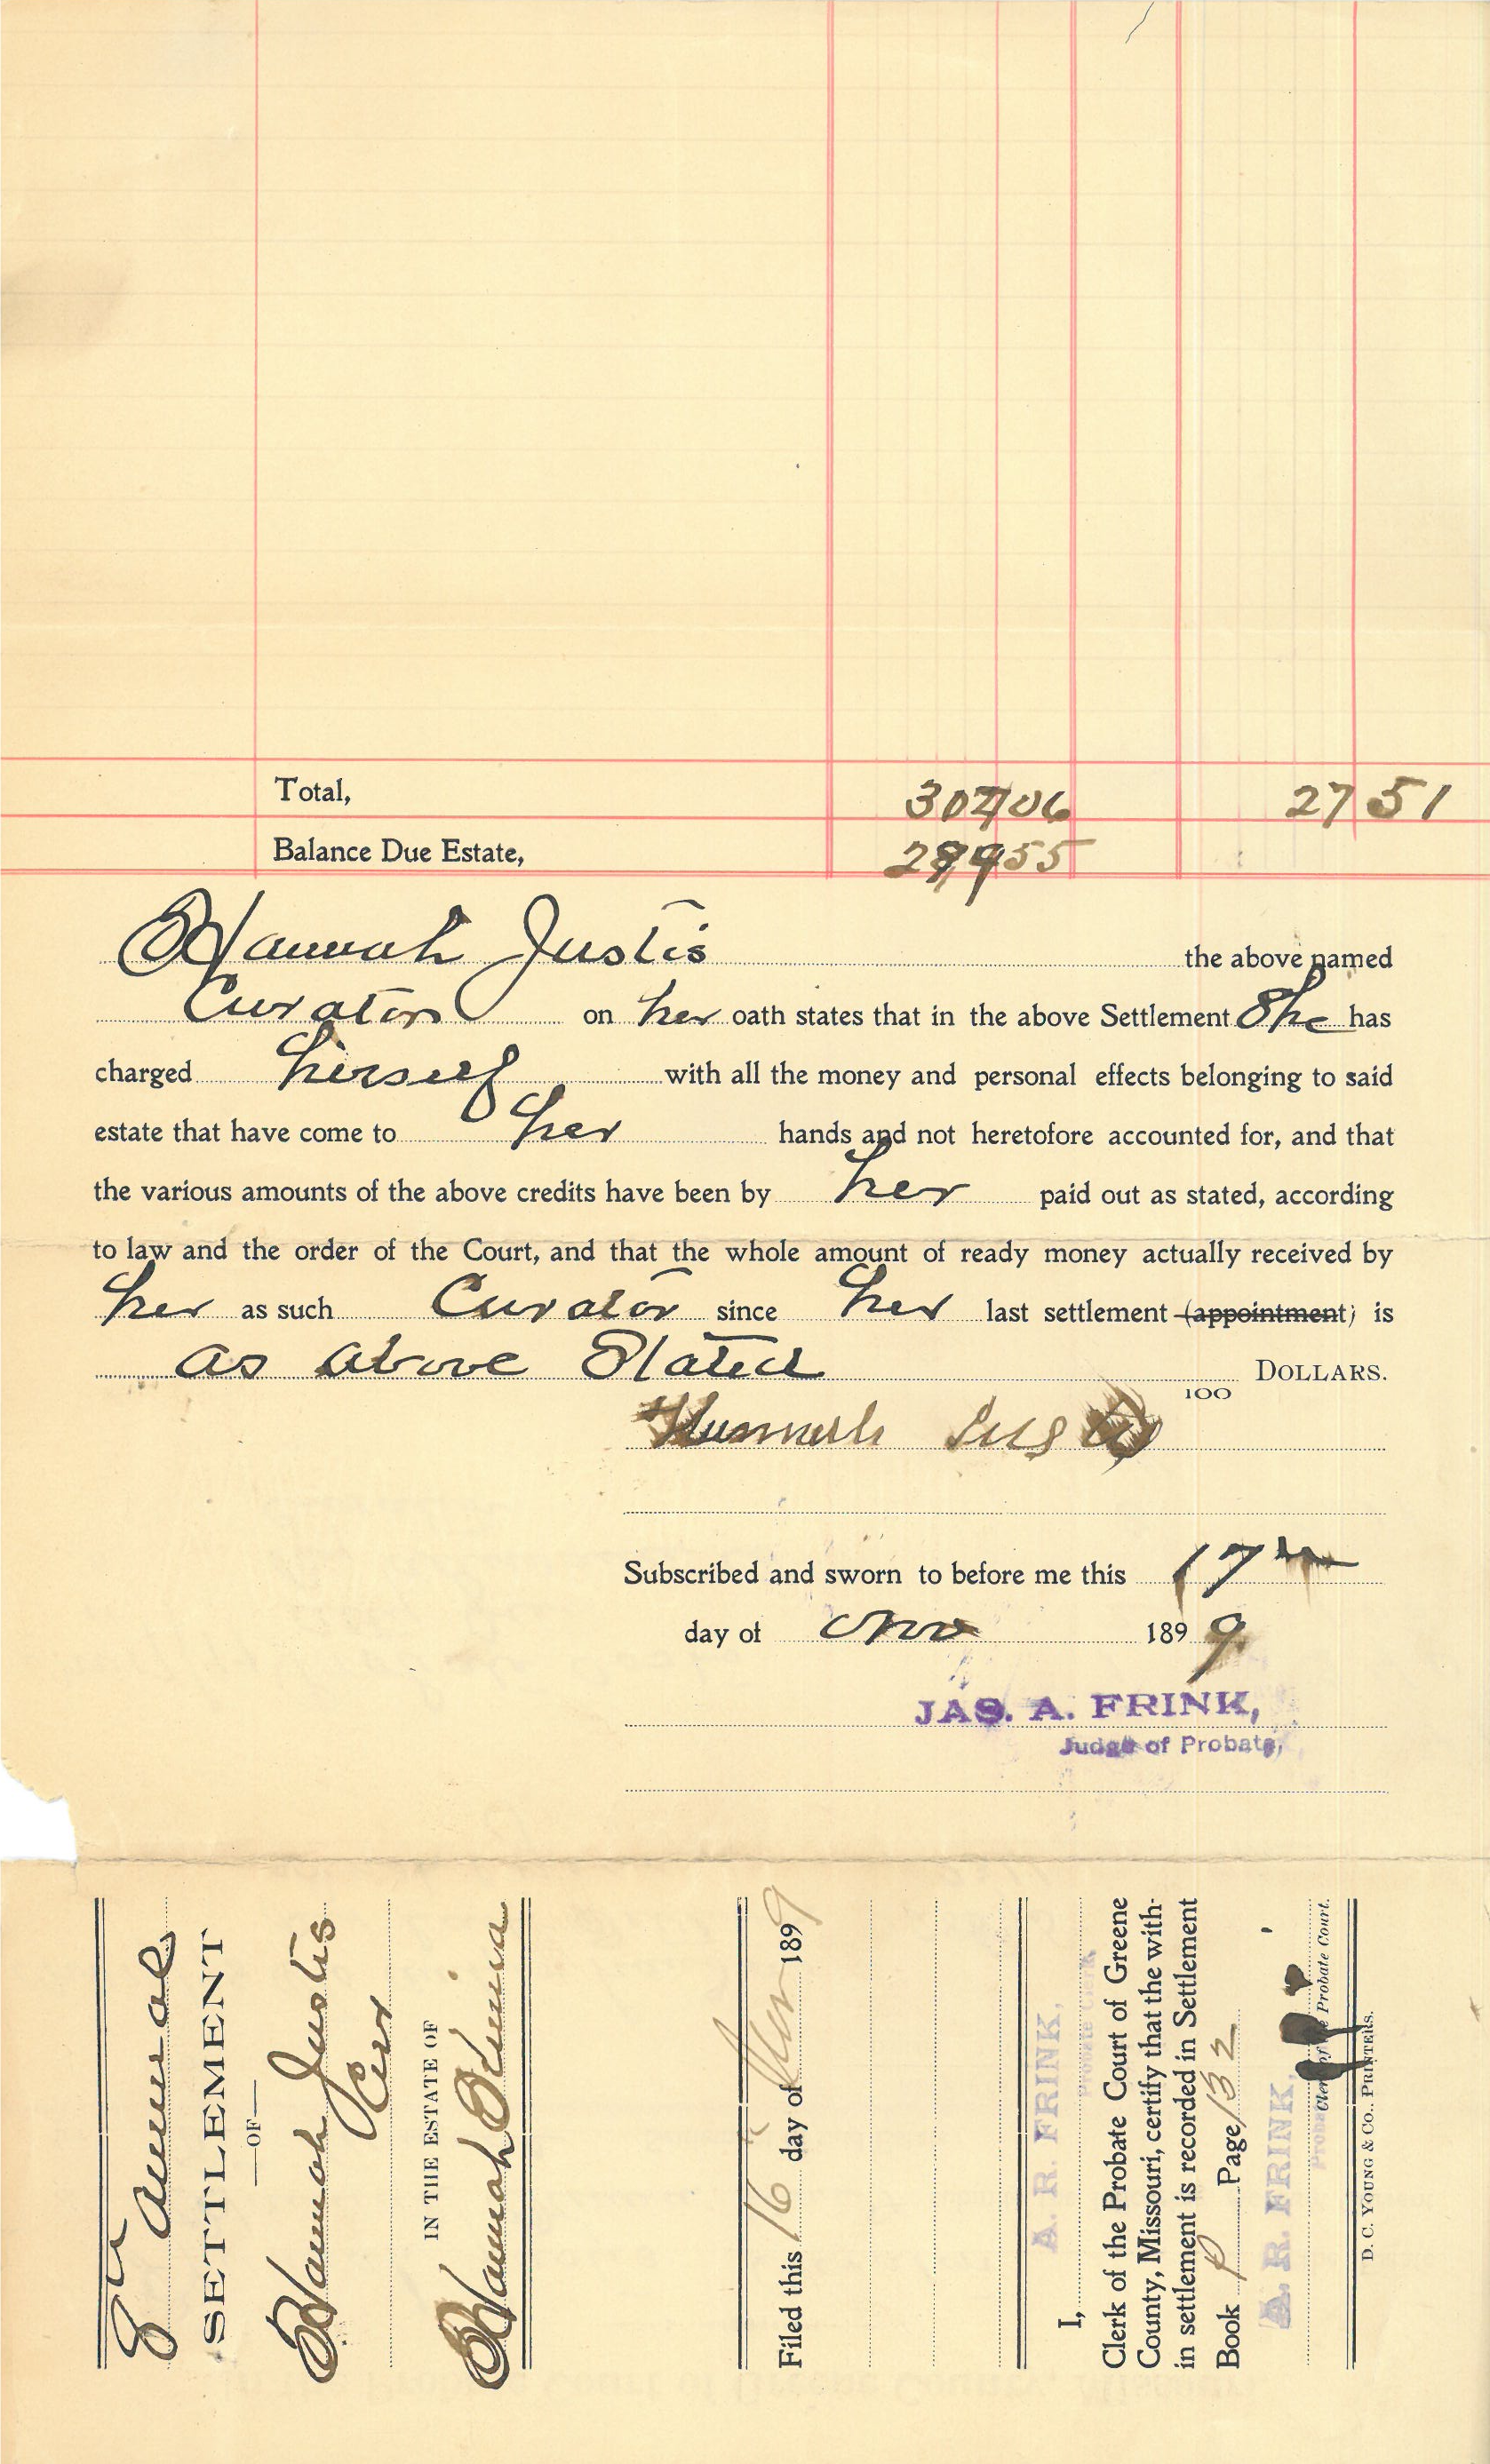 Total, 307 06 27 51
Balance Due Estate, 279 55
Hannah Justis the above named
Curator on her oath states that in the above Settlement She has
charged herself with all the money and personal effects belonging to said
estate that have come to her hands and not heretofore accounted for, and that
the various amounts of the above credits have been by her paid out as stated, according
to law and the order of the Court, and that the whole amount of ready money actually received by
her as such Curator since her last settlement (appointment) is
as above Stated 100 DOLLARS.
Hannah Justis
Subscribed and sworn to before me this 17th
day of Nov 1899
JAS. A. FRINK,
Judge of Probate,
8th Annual
SETTLEMENT
—OF—
Hannah Justis
Cur
IN THE ESTATE OF
Hannah
Filed this 16" day of Nov 1899
A. R. FRINK,
Probate Clerk
I,
Clerk of the Probate Court of Greene
County, Missouri, certify that the with-
in settlement is recorded in Settlement
Book P Page 132
A. R. FRINK,
Clerk of the Probate Court.
D. C. YOUNG & CO., PRINTERS.